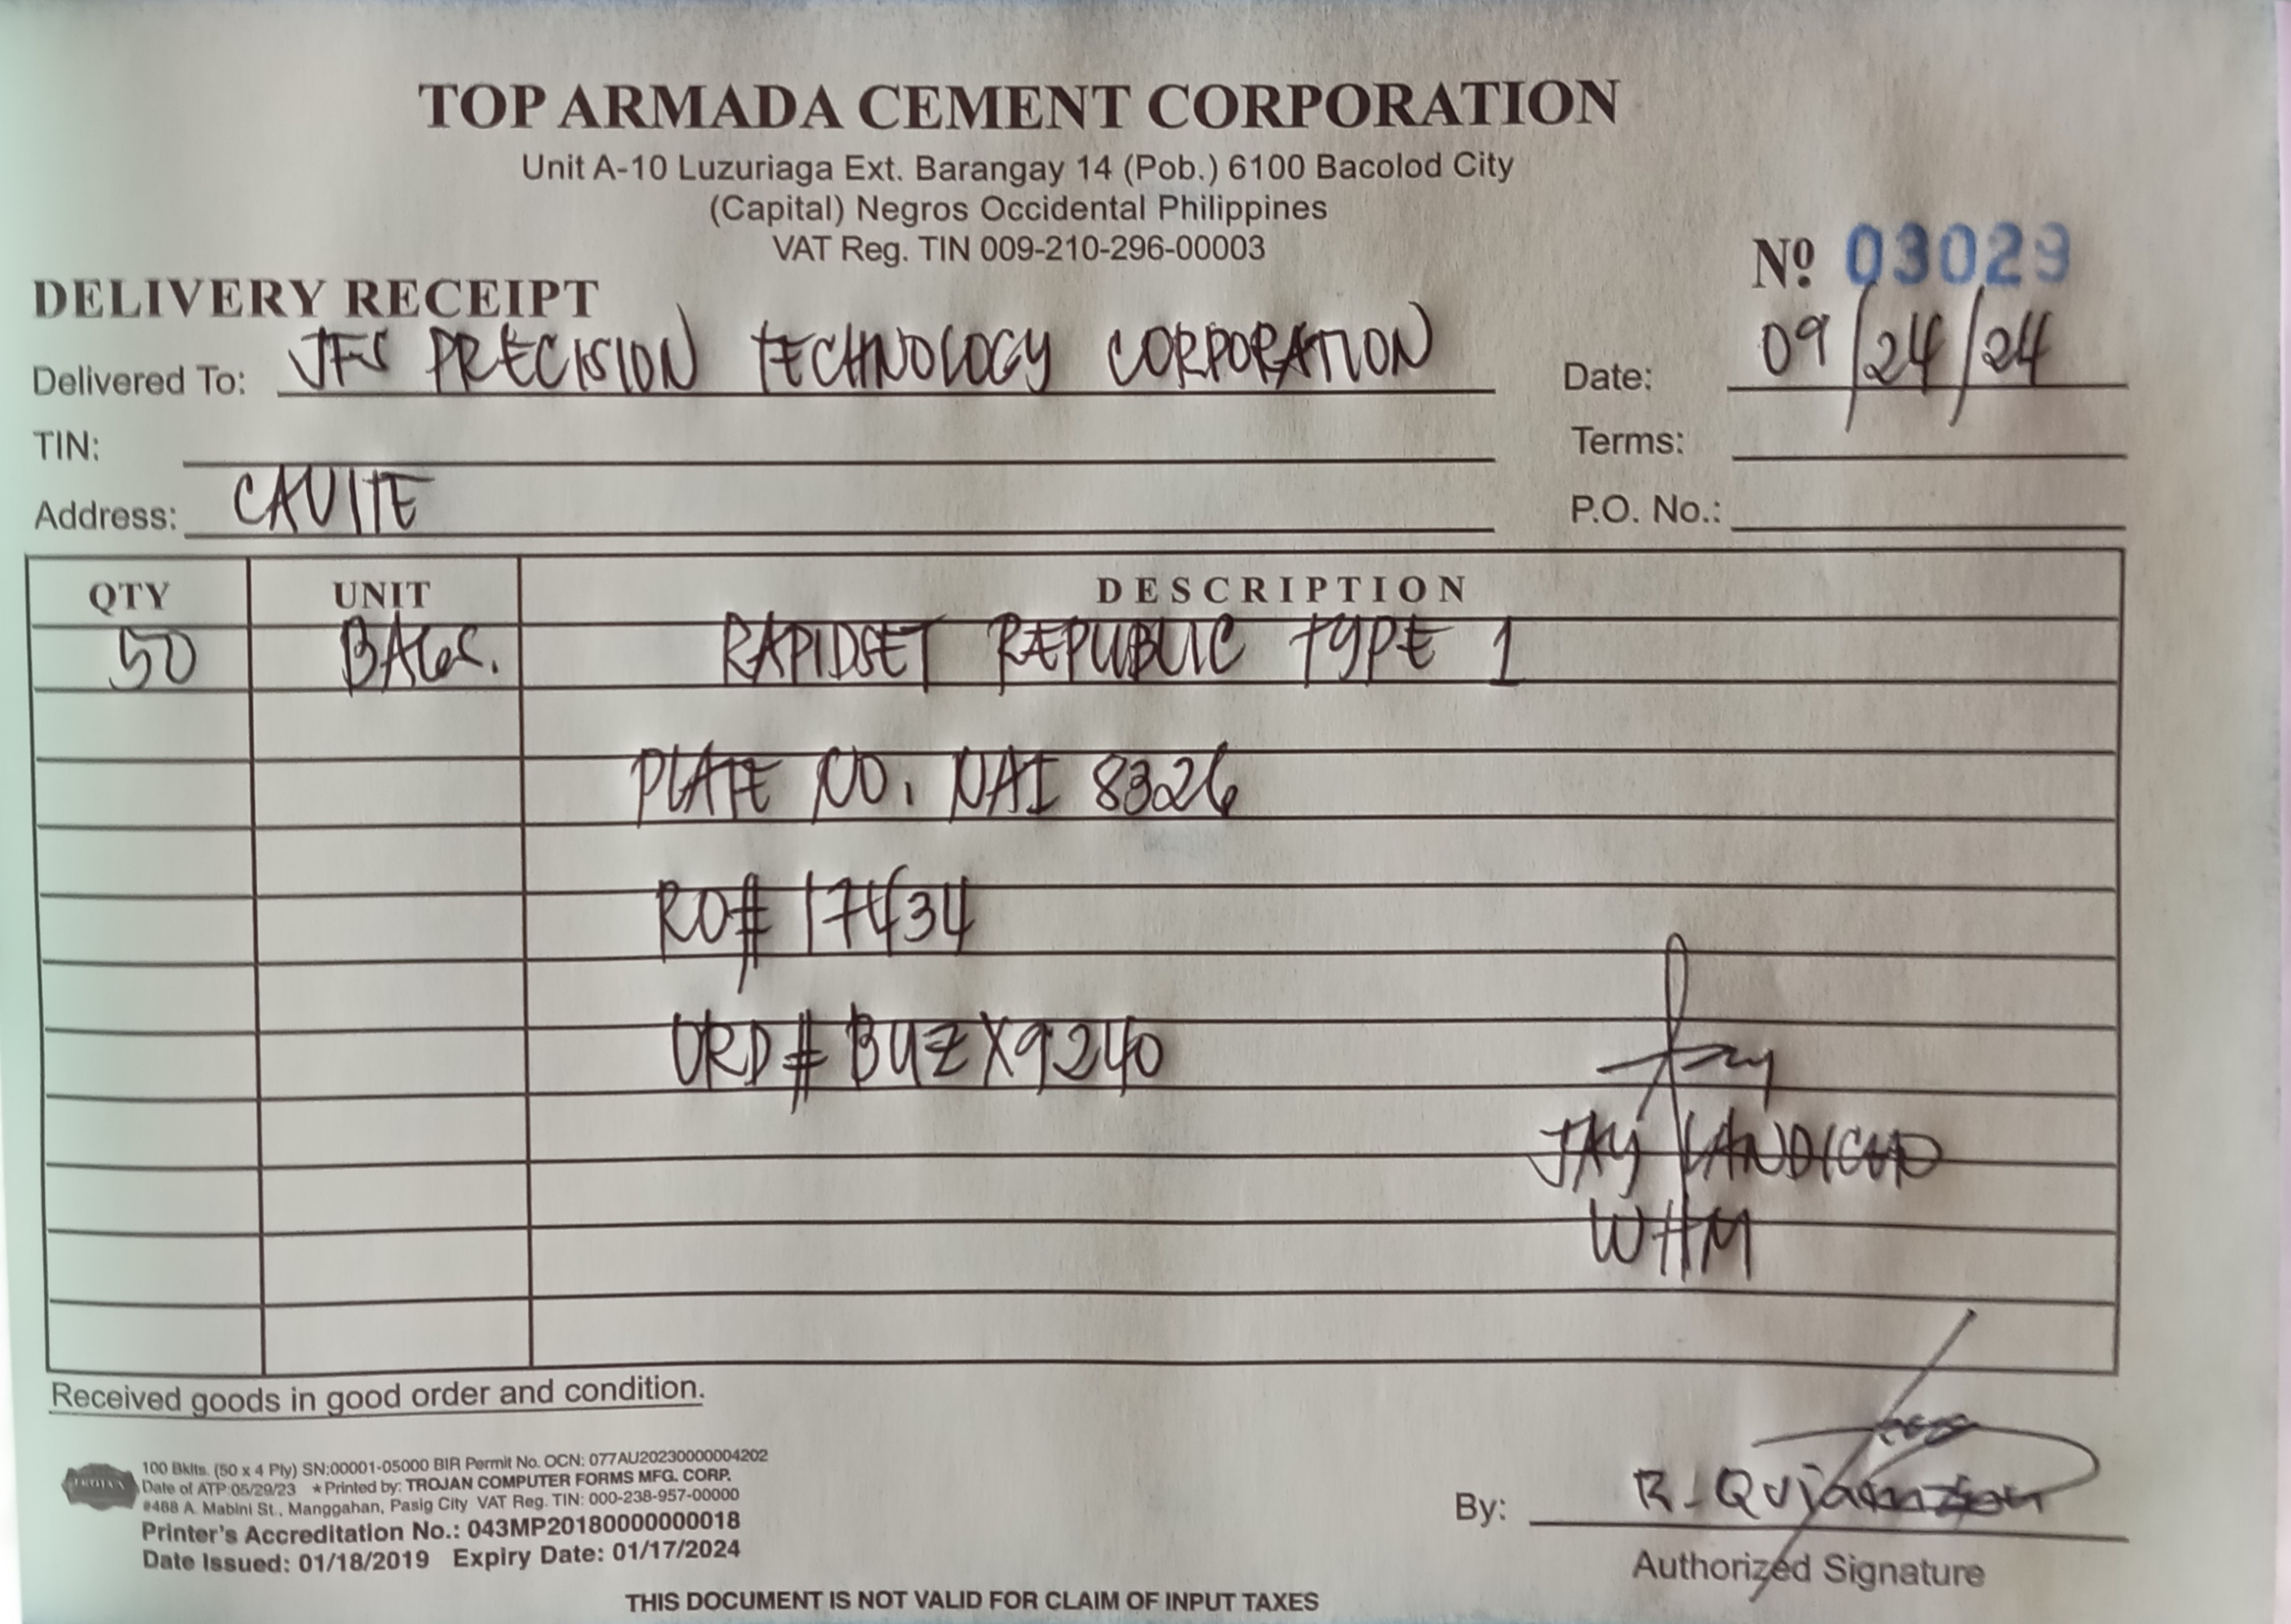 TOP ARMADA CEMENT CORPORATION
Unit A-10 Luzuriaga Ext. Barangay 14 (Pob.) 6100 Bacolod City
(Capital) Negros Occidental Philippines
VAT Reg. TIN 009-210-296-00003
Nº 03029
DELIVERY RECEIPT
Delivered To: JFS PRECISION TECHNOLOGY CORPORATION Date: 09/24/24
TIN: Terms:
Address: CAVITE P.O. No.:
QTY UNIT DESCRIPTION
50 BAGS. RAPIDSET REPUBLIC TYPE 1
PLATE NO. NAI 8326
RO# 17434
ORD# BUZX9240
Jay
JAY LANDICHO
WHM
Received goods in good order and condition.
TROJAN
100 Bklts. (50 x 4 Ply) SN:00001-05000 BIR Permit No. OCN: 077AU20230000004202
Date of ATP:05/29/23 * Printed by: TROJAN COMPUTER FORMS MFG. CORP.
#488 A. Mabini St., Manggahan, Pasig City VAT Reg. TIN: 000-238-957-00000
Printer's Accreditation No.: 043MP20180000000018
Date Issued: 01/18/2019 Expiry Date: 01/17/2024
By: R.
Authorized Signature
THIS DOCUMENT IS NOT VALID FOR CLAIM OF INPUT TAXES